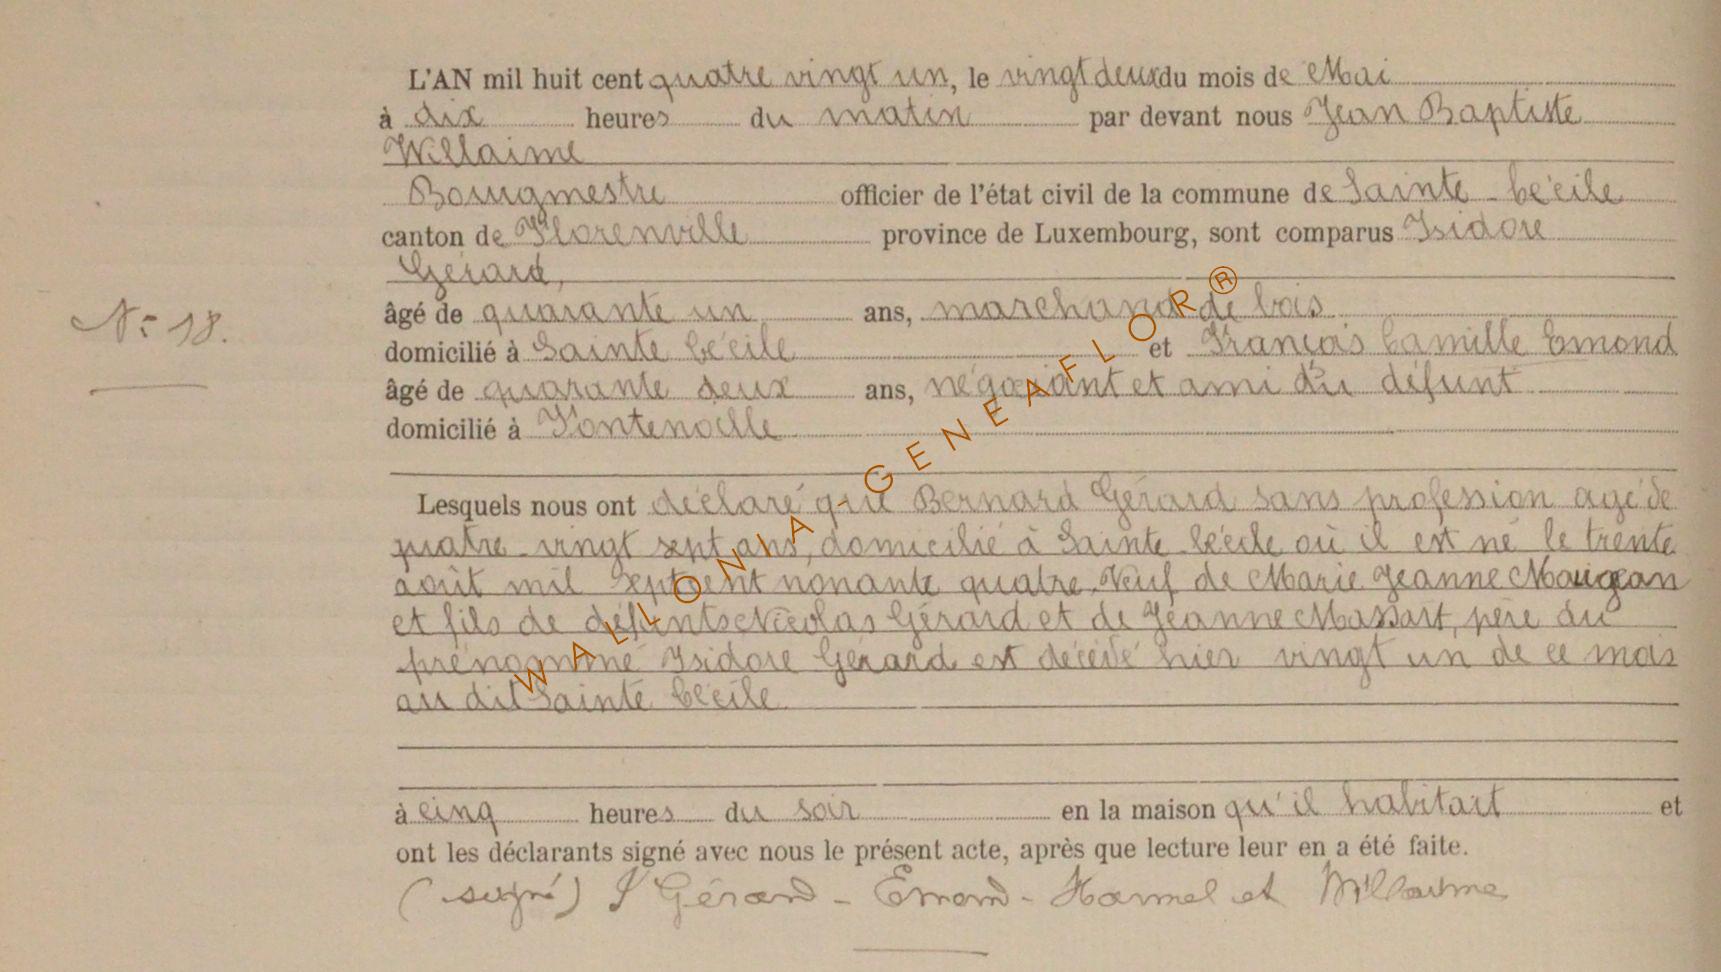 L'AN mil huit cent quatre vingt un, le vingt deux du mois de Mai
à dix heures du matin par devant nous Jean Baptiste
Willaime
Bourgmestre officier de l'état civil de la commune de Sainte-Cécile
canton de Florenville province de Luxembourg, sont comparus Isidore
Gérard,
âgé de quarante un ans, marchand de bois
N° 18.
domicilié à Sainte Cécile et François Camille Emond
âgé de quarante deux ans, négociant et ami du défunt
domicilié à Fontenoille
Lesquels nous ont déclaré que Bernard Gérard sans profession agé de
quatre-vingt sept ans, domicilié à Sainte-Cécile où il est né le trente
août mil sept cent nonante quatre. Veuf de Marie Jeanne Maugean
et fils de défunts Nicolas Gérard et de Jeanne Massart, père du
prénommé Isidore Gérard est décédé hier vingt un de ce mois
au dit Sainte Cécile.
à cinq heures du soir en la maison qu'il habitait et
ont les déclarants signé avec nous le présent acte, après que lecture leur en a été faite.
(signé) I Gérard - Emond - Hamel et Willaime
WALLONIA - GENEAFLOR ®